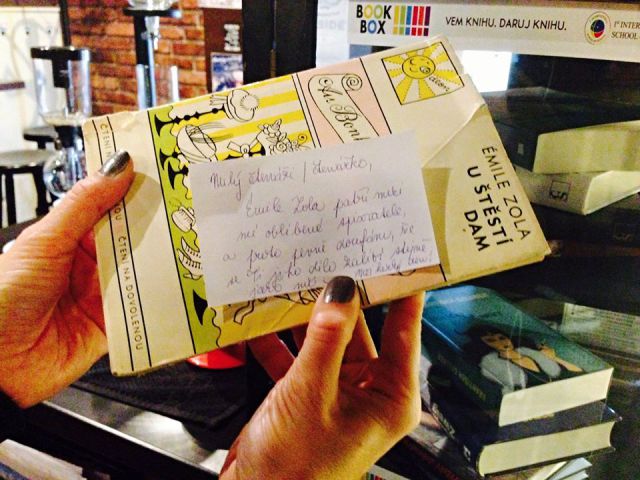 BOOK
BOX
VEM KNIHU. DARUJ KNIHU.
1st INTER
SCHOOL
Au Bonh
ÉMILE ZOLA
U ŠTĚSTÍ
DAM
ČTENÍ NA DOVOLENOU
Milý čtenáři / čtenářko,
Émile Zola patří mezi
mé oblíbené spisovatele,
a proto pevně doufám, že
se Ti jeho dílo zalíbí stejně
jako mě